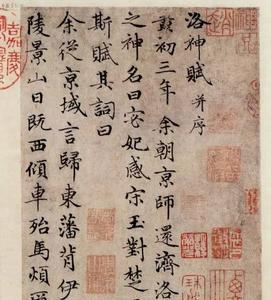 洛神賦 并序
黃初三年余朝京師還濟洛
之神名曰宓妃感宋玉對楚
斯賦其詞曰
余從京域言歸東藩背伊
陵景山日既西傾車殆馬煩
嘉慶